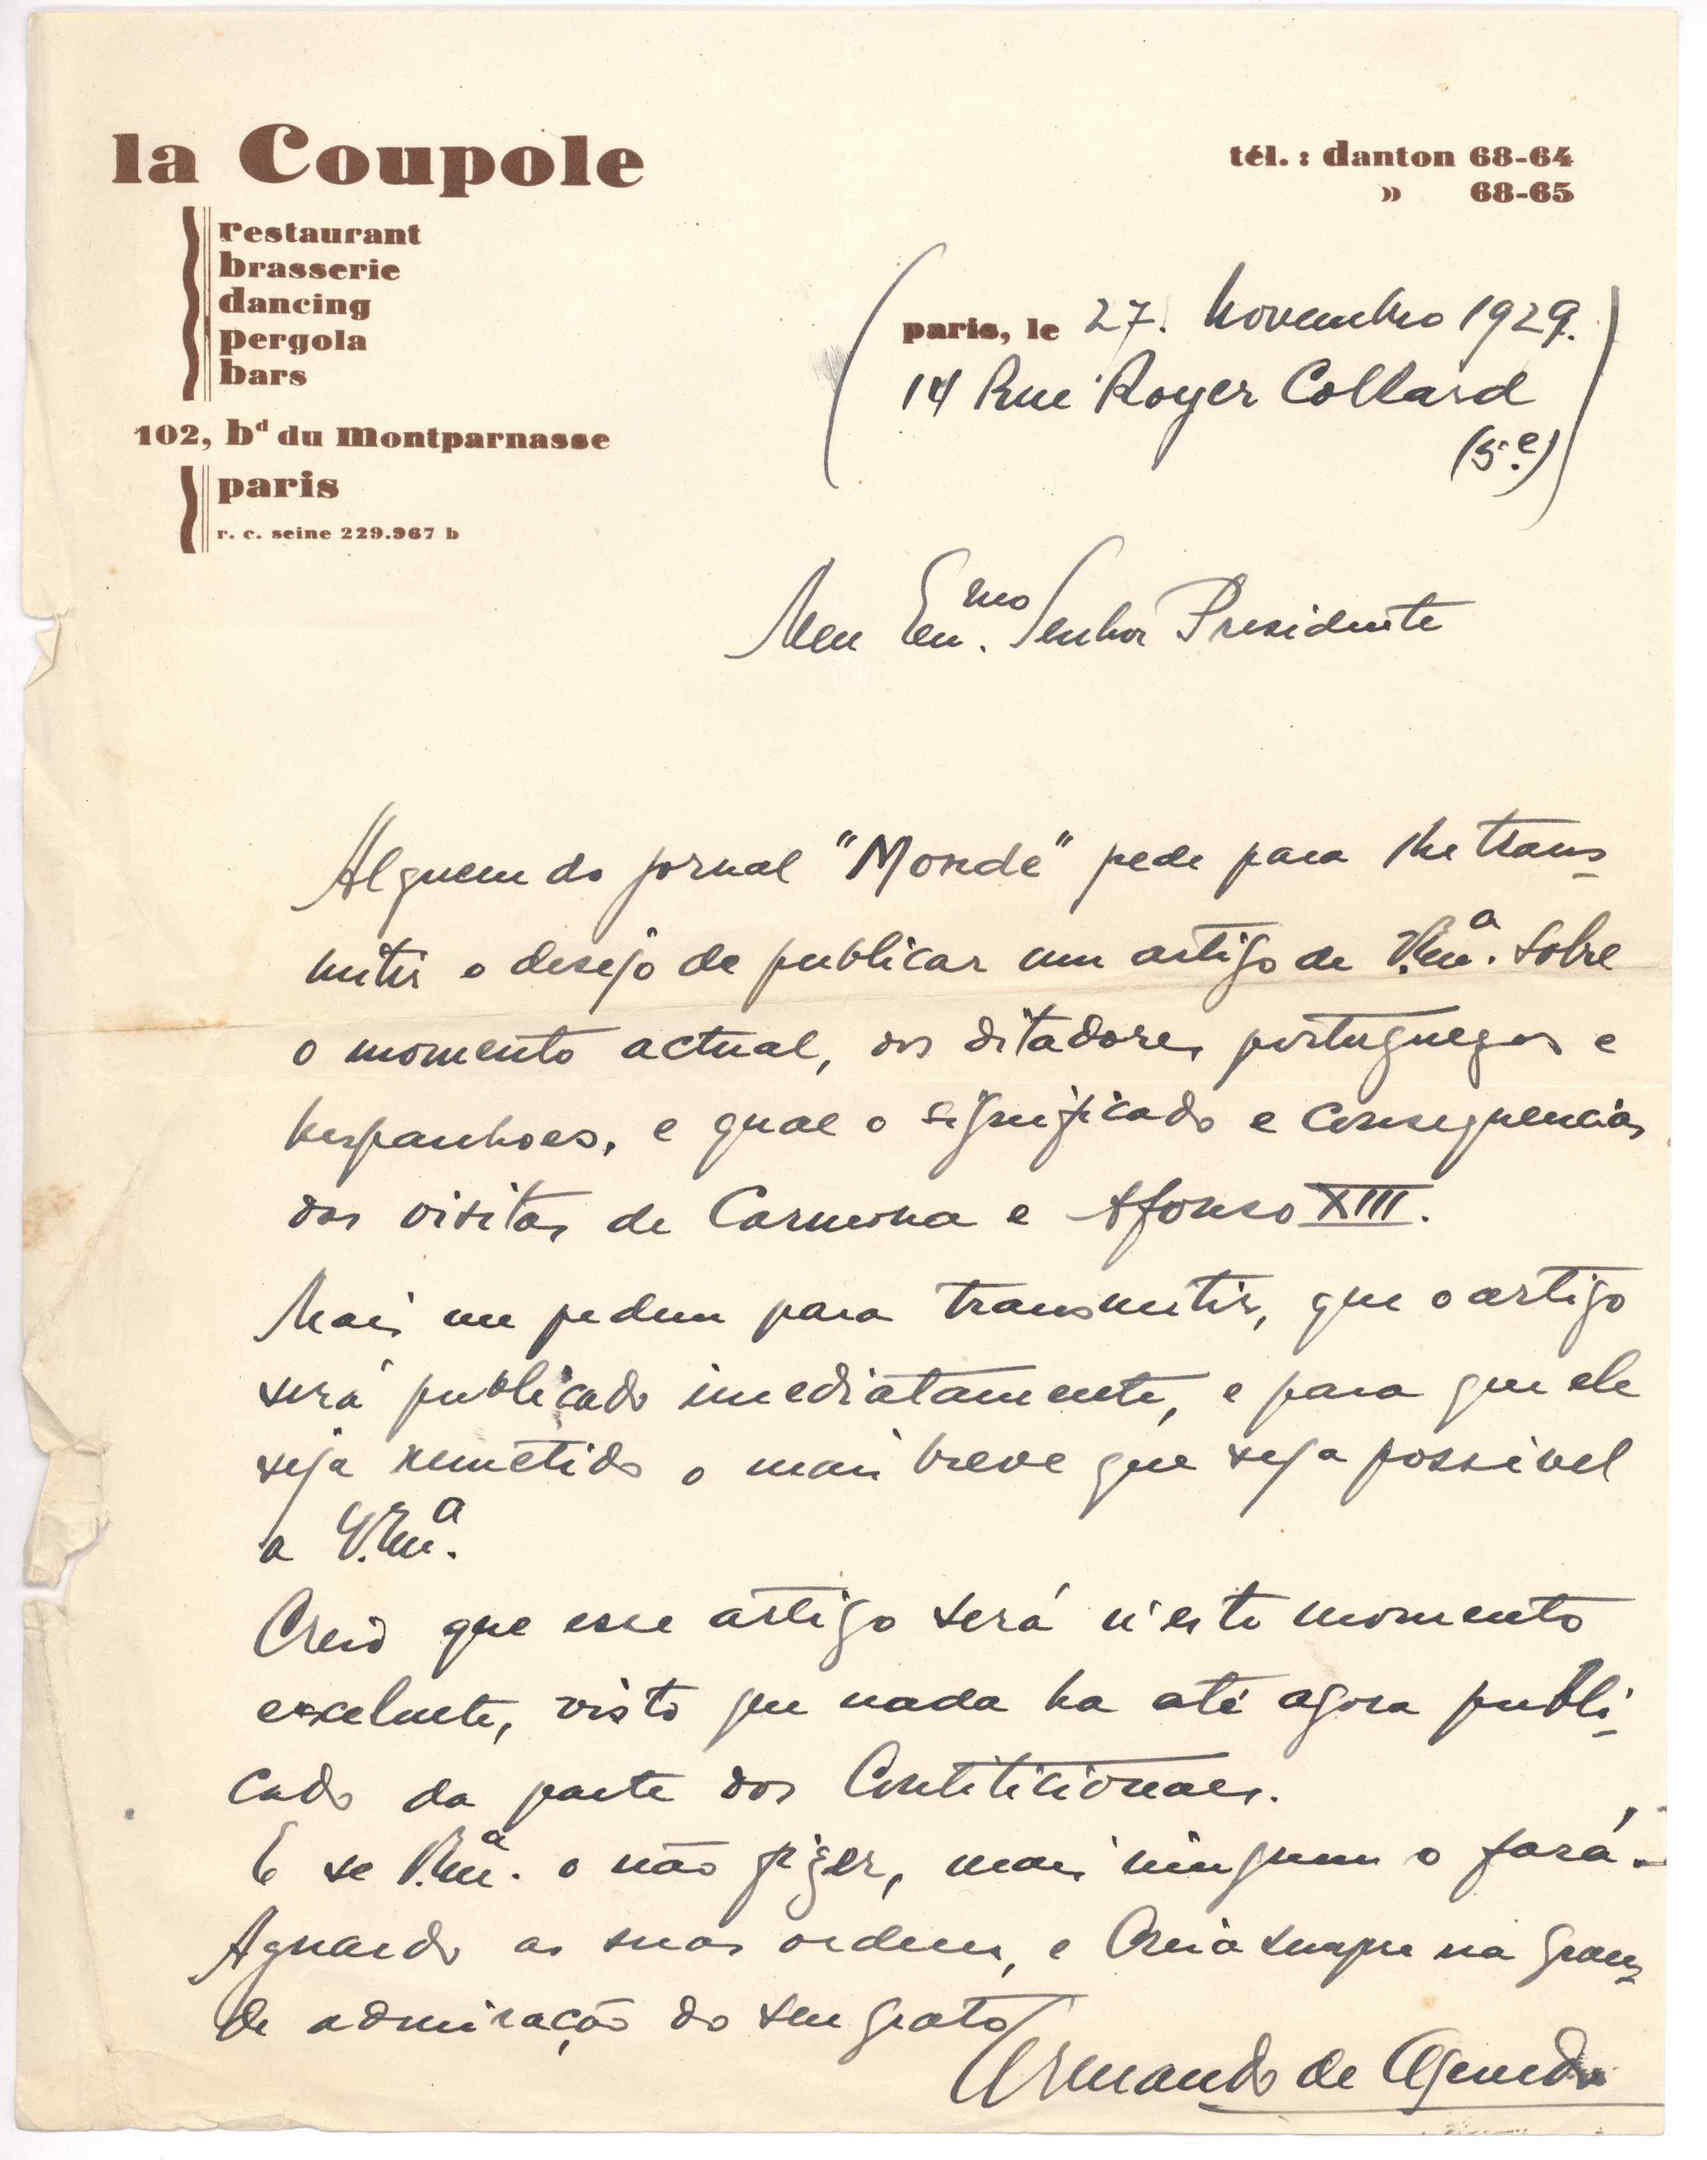 la Coupole
restaurant
brasserie
dancing
pergola
bars
102, bd du montparnasse
paris
r. c. seine 229.967 b
tél. : danton 68-64
» 68-65
(paris, le 27. Novembro 1929.)
14 Rue Royer Collard
(5.e)
Meu Em.mo Senhor Presidente
Alguem do jornal "Monde" pede para lhe trans-
mitir o desejo de publicar um artigo de V.Em.a sobre
o momento actual, os ditadores portuguezes e
hespanhoes, e qual o significado e consequencias
das visitas de Carmona e Afonso XIII.
Mais me pedem para transmitir, que o artigo
será publicado imediatamente, e para que ele
seja remetido o mais breve que seja possivel
a V.Em.a
Creio que esse artigo será n'este momento
excelente, visto que nada ha até agora publi-
cado da parte dos Contiticionaes.
E se V.Em.a o não fizer, mais ninguem o fará.
Aguardo as suas ordens, e Creia sempre na gran-
de admiração do seu grato
Armando de